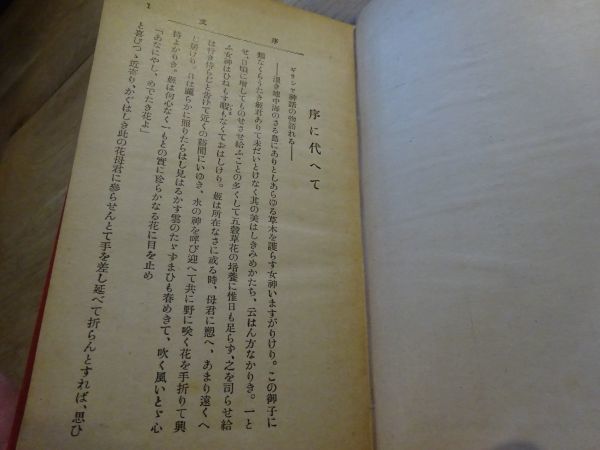 序文
1
序に代へて
ギリシヤ神話の物語れる――
――遠き地中海のさる島にありとしあらゆる草木を護らす女神いますがりけり。この御子に
類なくらうたき姫君ありて未だいとけなく其の美はしきみめかたち、云はん方なかりき。一と
せ、日頃に増してものせさせ給ふことの多くして五穀草花の培養に惟日も足らず、之を司らせ給
ふ女神はひねもす暇もなくておはしけり。姫は所在なさに或る時、母君に懇へ、あまり遠くへ
は行き侍らじと告げて近くの谿間にいゆき、水の神を呼び迎へて共に野に咲く花を手折りて興
じ居けり。日は麗らかに照りたらはし見はるかす雲のたゝずまひも春めきて、吹く風いとゞ心
持よかりき。姫は何心なく一もとの實に珍らかなる花に目を止め
「あなにやし、めでたき花よ」
と喜びつゝ近寄り、かぐはしき此の花母君に參らせんとて手を差し延べて折らんとすれば、思ひ